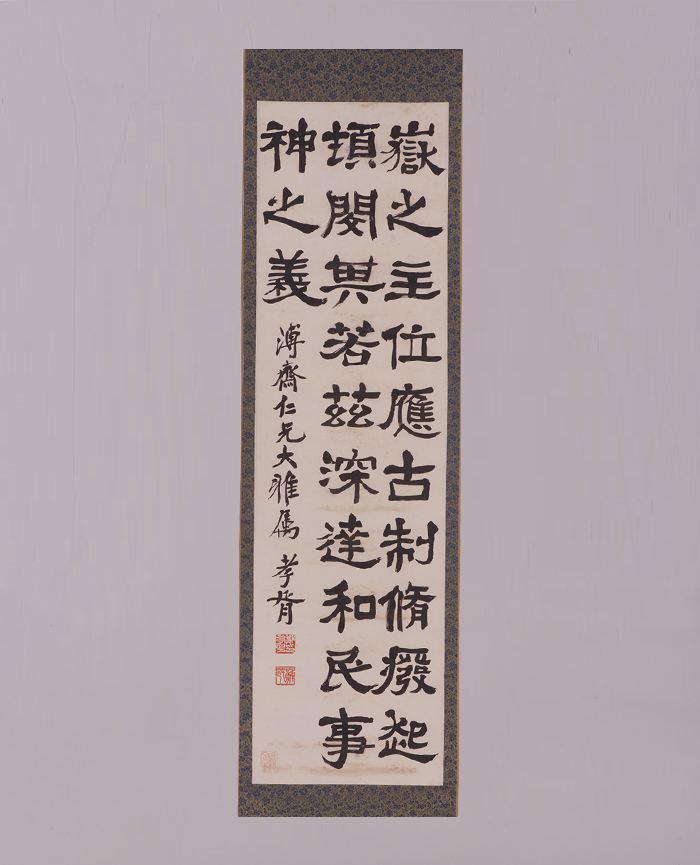 嶽之主位應古制脩癈起
頓閔其若茲深達和民事
神之義
溥齋仁兄大雅属 孝胥